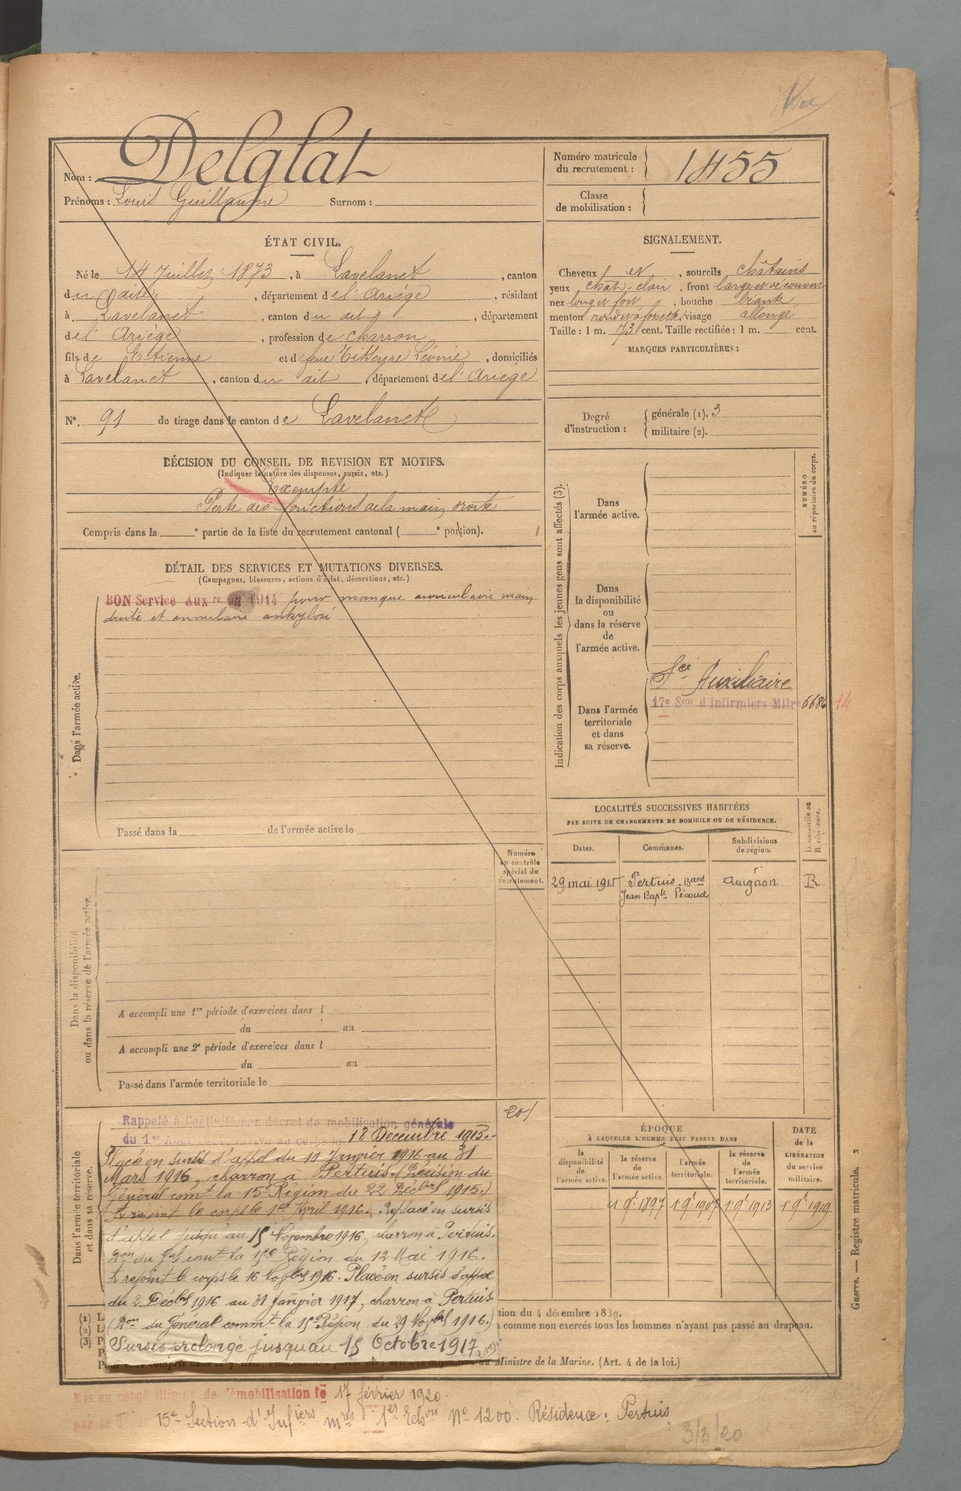 Nom : Delglat
Prénoms : Louis Guillaume Surnom :
Numéro matricule du recrutement : 1455
Classe de mobilisation :
ÉTAT CIVIL.
Né le 14 Juillet 1873, à Lavelanet, canton
du dait, département de l'Ariège, résidant
à Lavelanet, canton du dit, département
de l'Ariège, profession de charron,
fils de Etienne et de feue Léonie, domiciliés
à Lavelanet, canton du dit, département de l'Ariège
N°. 91 de tirage dans le canton de Lavelanet
SIGNALEMENT.
Cheveux et, sourcils châtains
yeux chât-clair, front large et découvert
nez long et fort, bouche
menton, visage allongé
Taille : 1 m. 73 cent. Taille rectifiée : 1 m. cent.
MARQUES PARTICULIÈRES :
Degré d'instruction : générale (1). 3
militaire (2).
DÉCISION DU CONSEIL DE REVISION ET MOTIFS.
(Indiquer la nature des dispenses, sursis, etc.)
Exempté
Perte des fonctions de la main droite
Compris dans la e partie de la liste du recrutement cantonal ( e portion).
DÉTAIL DES SERVICES ET MUTATIONS DIVERSES.
(Campagnes, blessures, actions d'éclat, décorations, etc.)
BON Service Auxre en 1914 pour manque auriculaire main
droite et annulaire ankylosé
Dans l'armée active.
Passé dans la de l'armée active le
Numéro au contrôle spécial du recrutement.
Dans la disponibilité ou dans la réserve de l'armée active.
A accompli une 1re période d'exercices dans l
du au
A accompli une 2e période d'exercices dans l
du au
Passé dans l'armée territoriale le
Indication des corps auxquels les jeunes gens sont affectés (3).
NUMÉRO au répertoire du corps.
Dans l'armée active.
Dans la disponibilité ou dans la réserve de l'armée active.
Dans l'armée territoriale et dans sa réserve.
Sce Auxiliaire
17e Son d'Infirmiers Milres 14
LOCALITÉS SUCCESSIVES HABITÉES
PAR SUITE DE CHANGEMENTS DE DOMICILE OU DE RÉSIDENCE.
Dates. Communes. Subdivisions de région. Domicile ou Résidence.
29 mai 1915 Pertuis Bard Avignon R
Jean Bapte Pécoud
ÉPOQUE
À LAQUELLE L'HOMME DOIT PASSER DANS
DATE de la LIBÉRATION du service militaire.
la disponibilité de l'armée active. la réserve de l'armée active. l'armée territoriale. la réserve de l'armée territoriale.
1 9e 1897 1 9e 1907 1 9e 1913 1 9e 1919
Dans l'armée territoriale et dans sa réserve.
Rappelé à l'activité par décret de mobilisation générale
du 1er Août 18 Décembre 1915.
Placé en sursis d'appel du 10 Janvier 1916 au 31
Mars 1916, charron à Pertuis (Décision du
Général comt la 15e Région du 22 Décbre 1915.)
A rejoint le corps le 1er Avril 1916. Replacé en sursis
d'appel jusqu'au 15 Novembre 1916, charron à Pertuis.
Don du Gal comt la 15e Région du 12 Mai 1916.
A rejoint le corps le 16 Novbre 1916. Placé en sursis d'appel
du 2 Décbre 1916 au 31 Janvier 1917, charron à Pertuis
(Don du Général commt la 15e Région du 29 Novbre 1916.)
Sursis prolongé jusqu'au 15 Octobre 1917
tion du 4 décembre 1889.
comme non exercés tous les hommes n'ayant pas passé au drapeau.
au Ministre de la Marine. (Art. 4 de la loi.)
Mis en congé illimité de démobilisation le 17 février 1920.
par le 15e Section d'Infiers mres 1er Echon N° 1200. Résidence : Pertuis
3/3/20
Guerre. — Registre matricule.